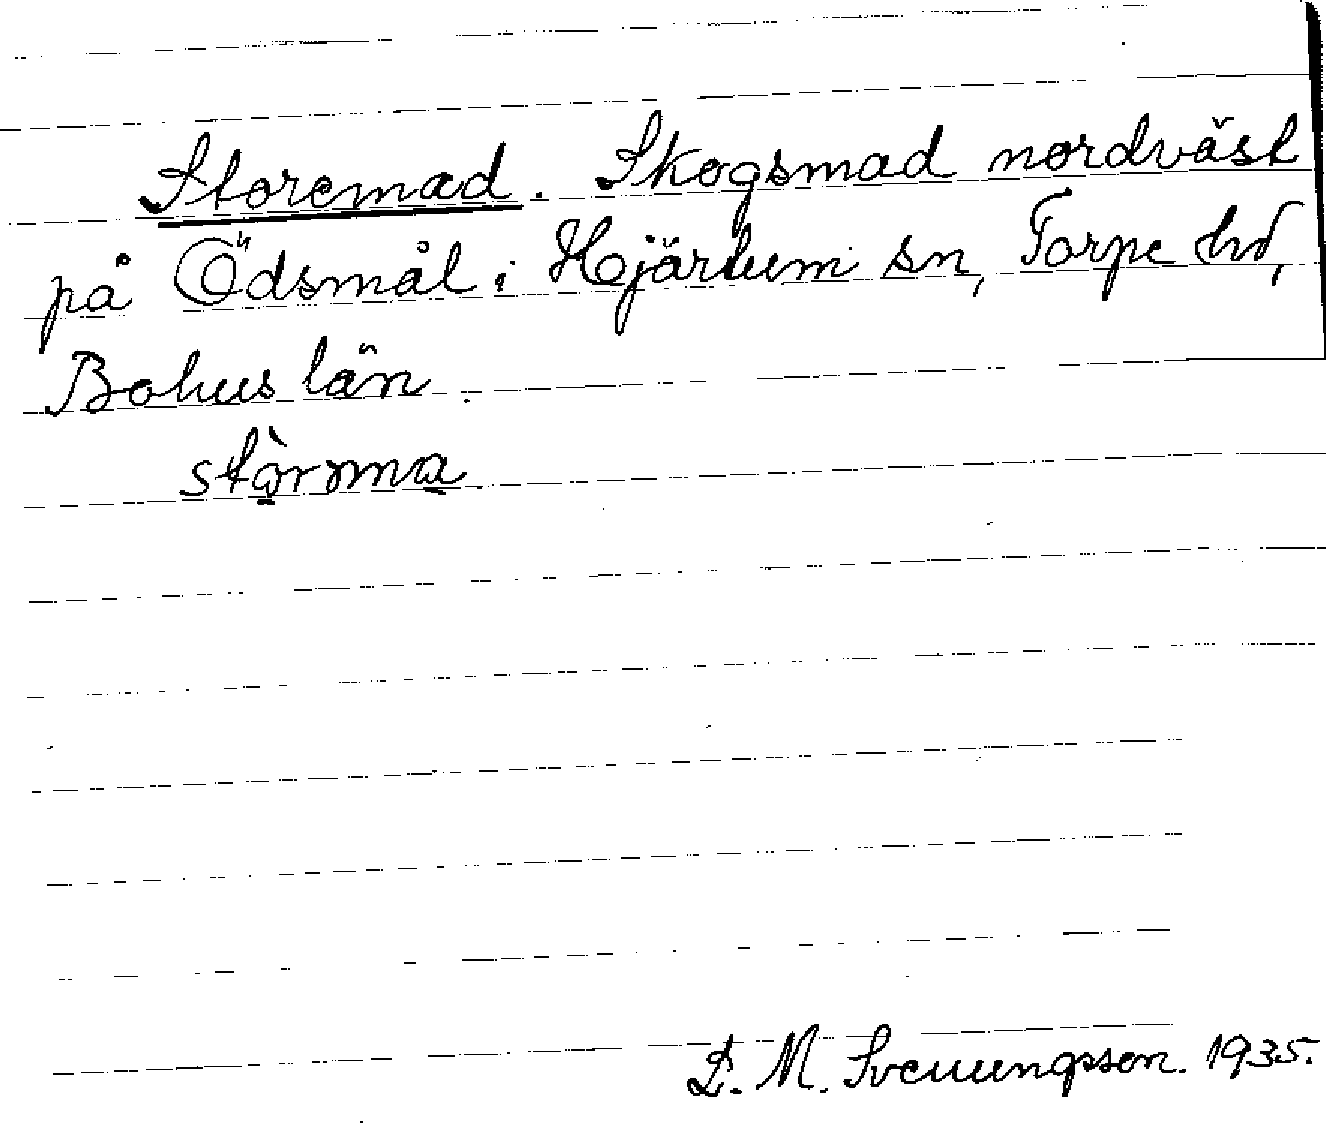 Storemad. Skogsmad nordväst
på Ödsmål i Hjärtum sn, Torpe hd,
Bohus län
stòrmma
D. M. Svenungsson. 1935.